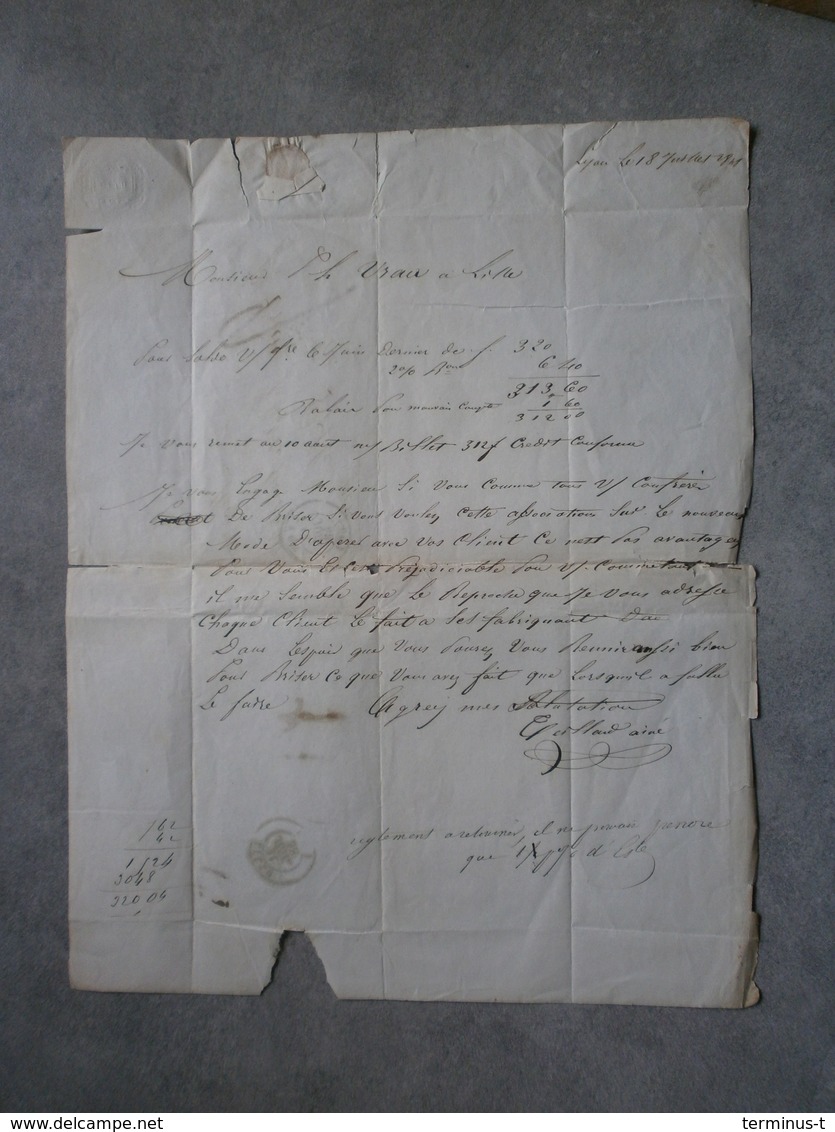 Lyon Le 18 Juillet
Monsieur Ph Vrau a Lille
Pour solde V/ fre Le Juin Dernier de f. 320
2 % 6 40
313,60
Rabais Pour mauvais Compte 1 60
312 00
Je vous remet au 10 aout m/ Billet 312f Credit Conforme
Je vous Engage Monsieur Si Vous Comme tous V/ Confrère
De Briser Si Vous Voulez Cette association Sur Le nouveau
Mode D'aperer avec Vos Client Ce nest Pas avantageu
Pour Vous Et Cest Préjudiciable Pour V/ Commetant
il me Semble que Le Reproche que Je Vous adresse
Chaque Client Le fait a Ses fabriquant
Dans Lespoir que Vous Pourez Vous Reunir aussi bien
Pour Briser Ce que Vous avez fait que Lorsquil a fallu
Le faire Agrey mes Salutation
ainé
162
42
1124
3048
320 04
reglement a il ne
que d'Esc
terminus-t
www.delcampe.net